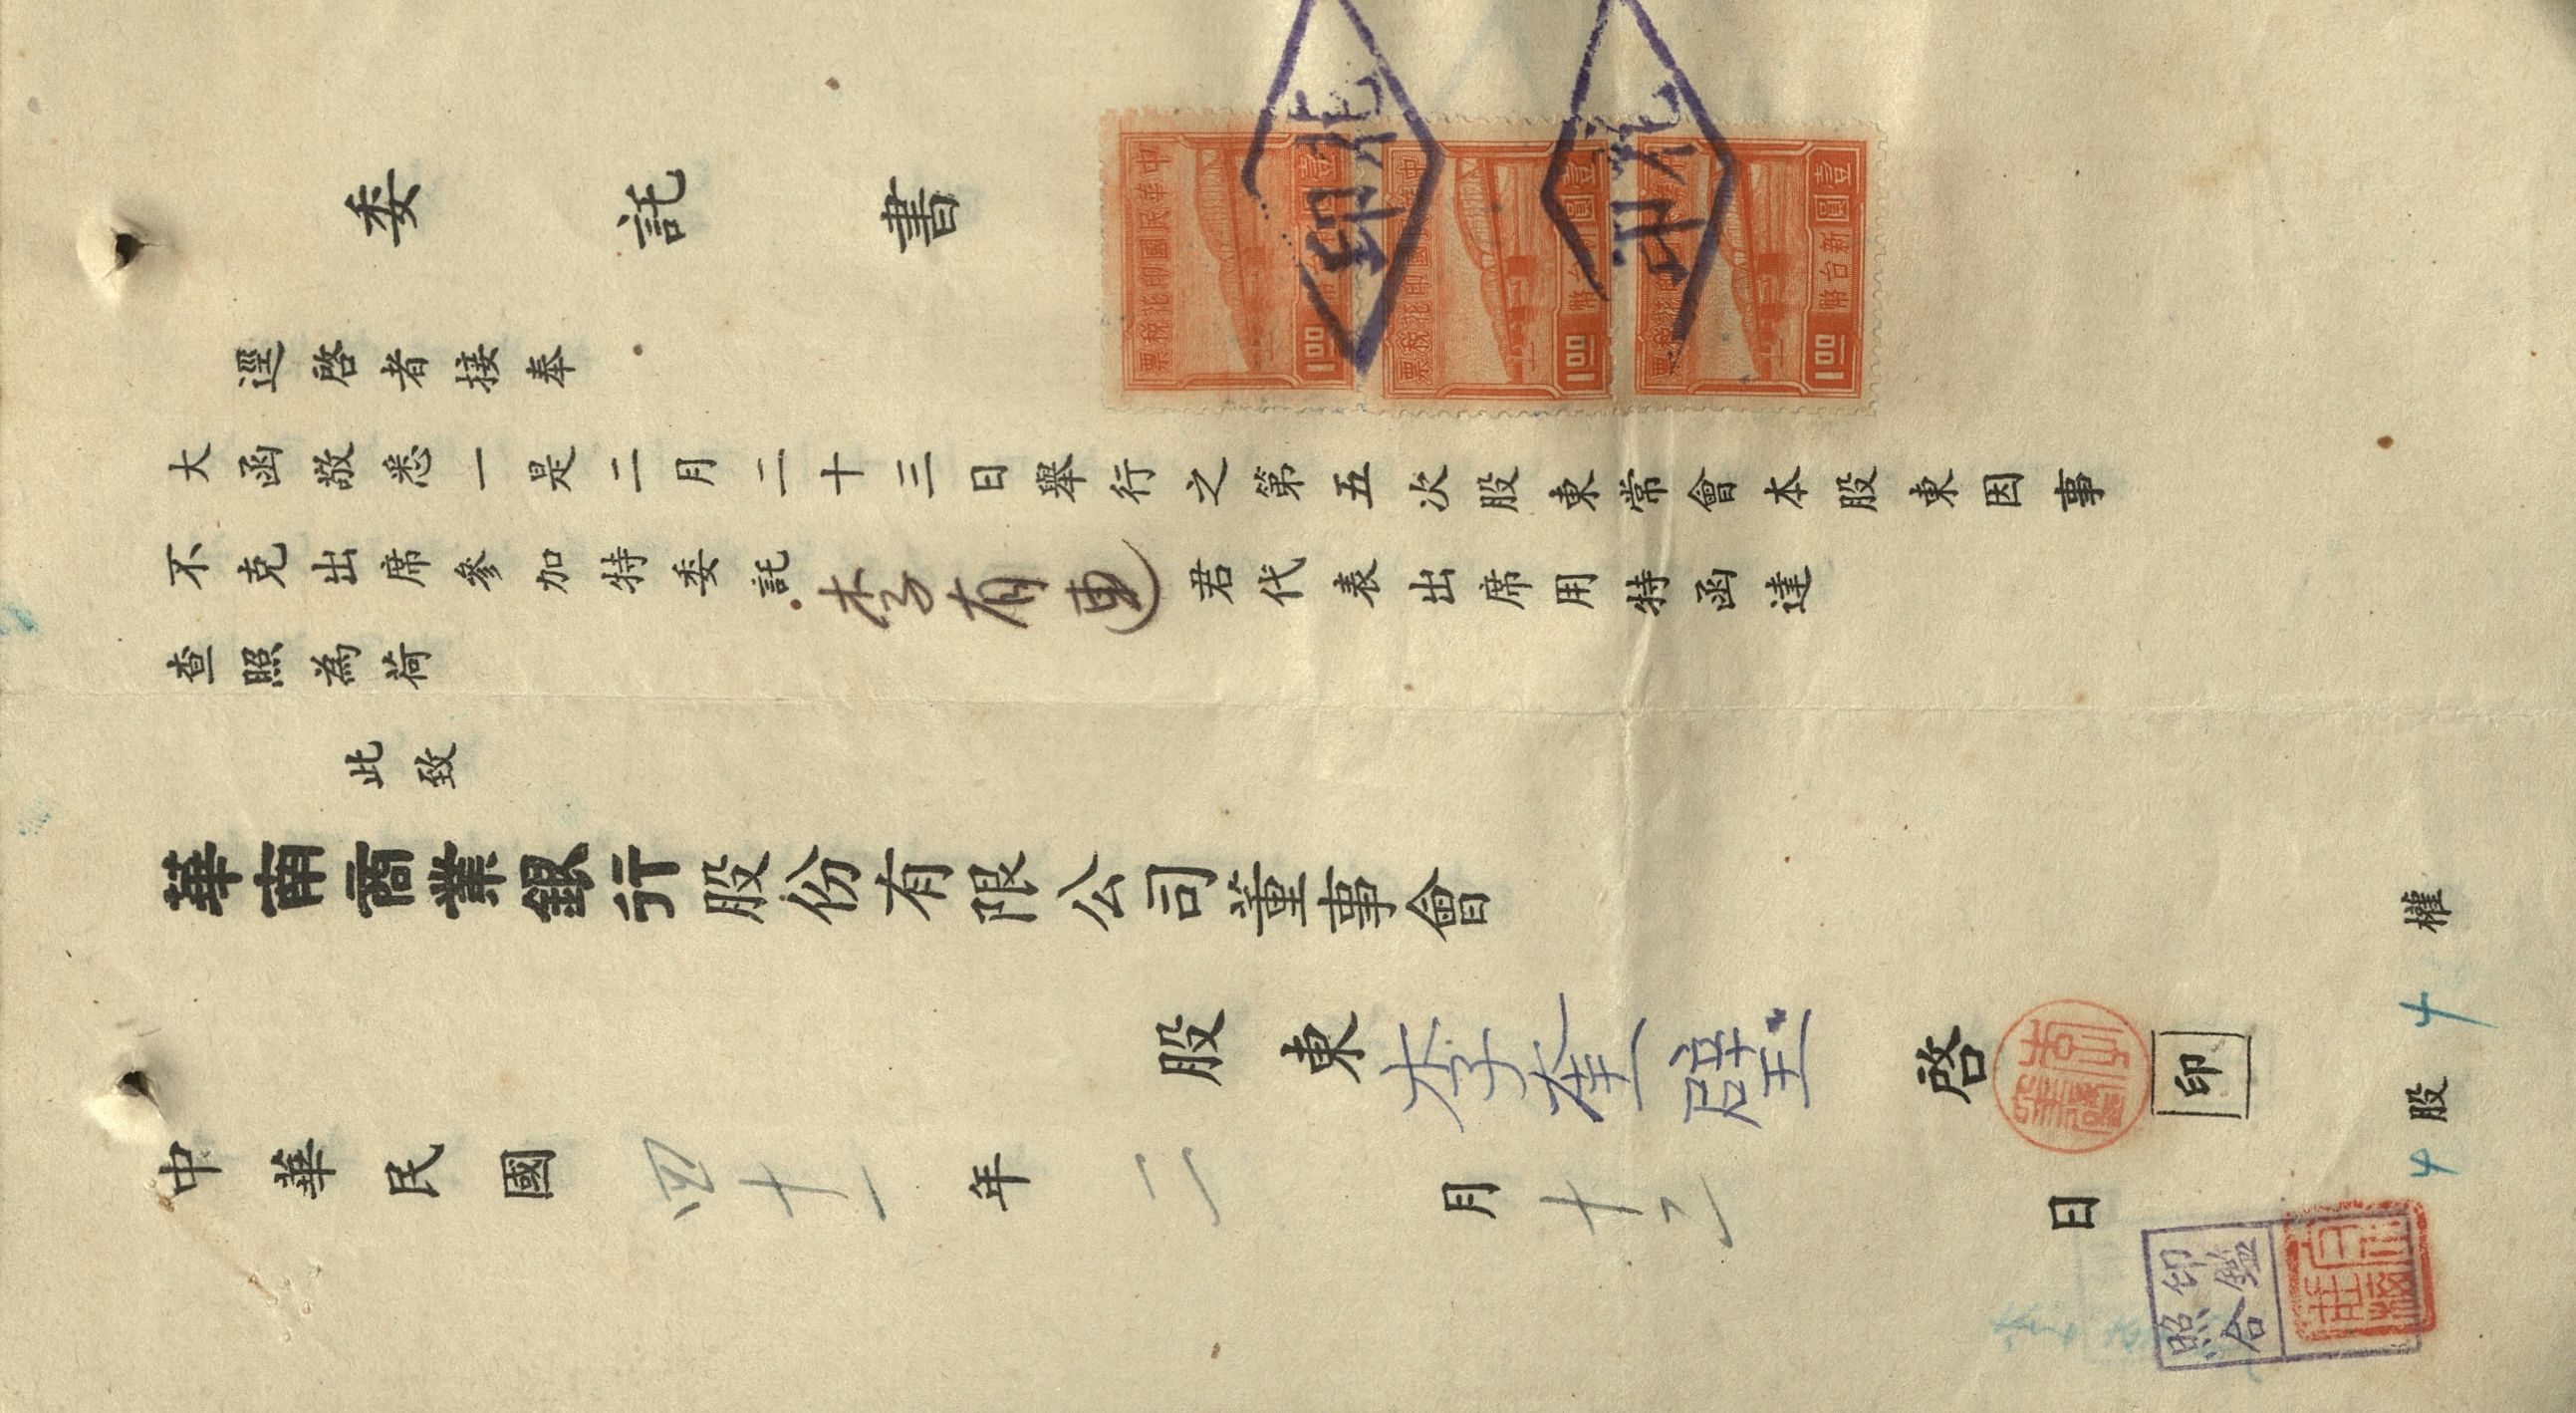 委託書
逕啓者接奉
大函敬悉一是二月二十三日舉行之第五次股東常會本股東因事
不克出席參加特委託李有連君代表出席用特函達
查照為荷
此致
華南商業銀行股份有限公司董事會
股東李奎璧啓
印
中華民國四十一年二月十二日
4股4權
印鑑
照合
中華民國印花稅票
壹圓
新台幣
1.00
壹圓
新台幣
1.00
壹圓
新台幣
1.00